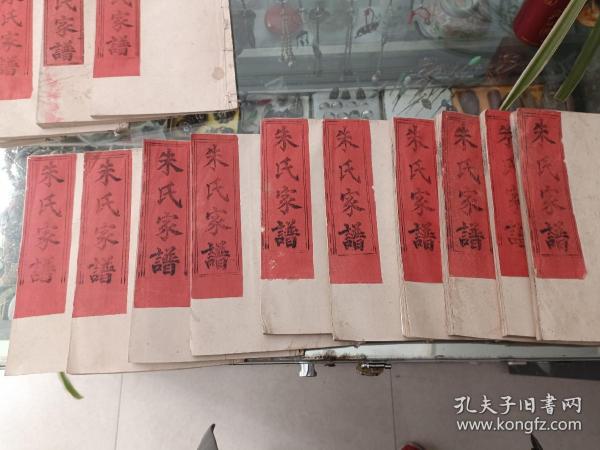 氏家譜
氏家譜
氏家譜
朱氏家譜
朱氏家譜
朱氏家譜
朱氏家譜
朱氏家譜
朱氏家譜
朱氏家譜
朱氏家譜
朱氏家譜
朱氏家譜
孔夫子旧書网
www.kongfz.com